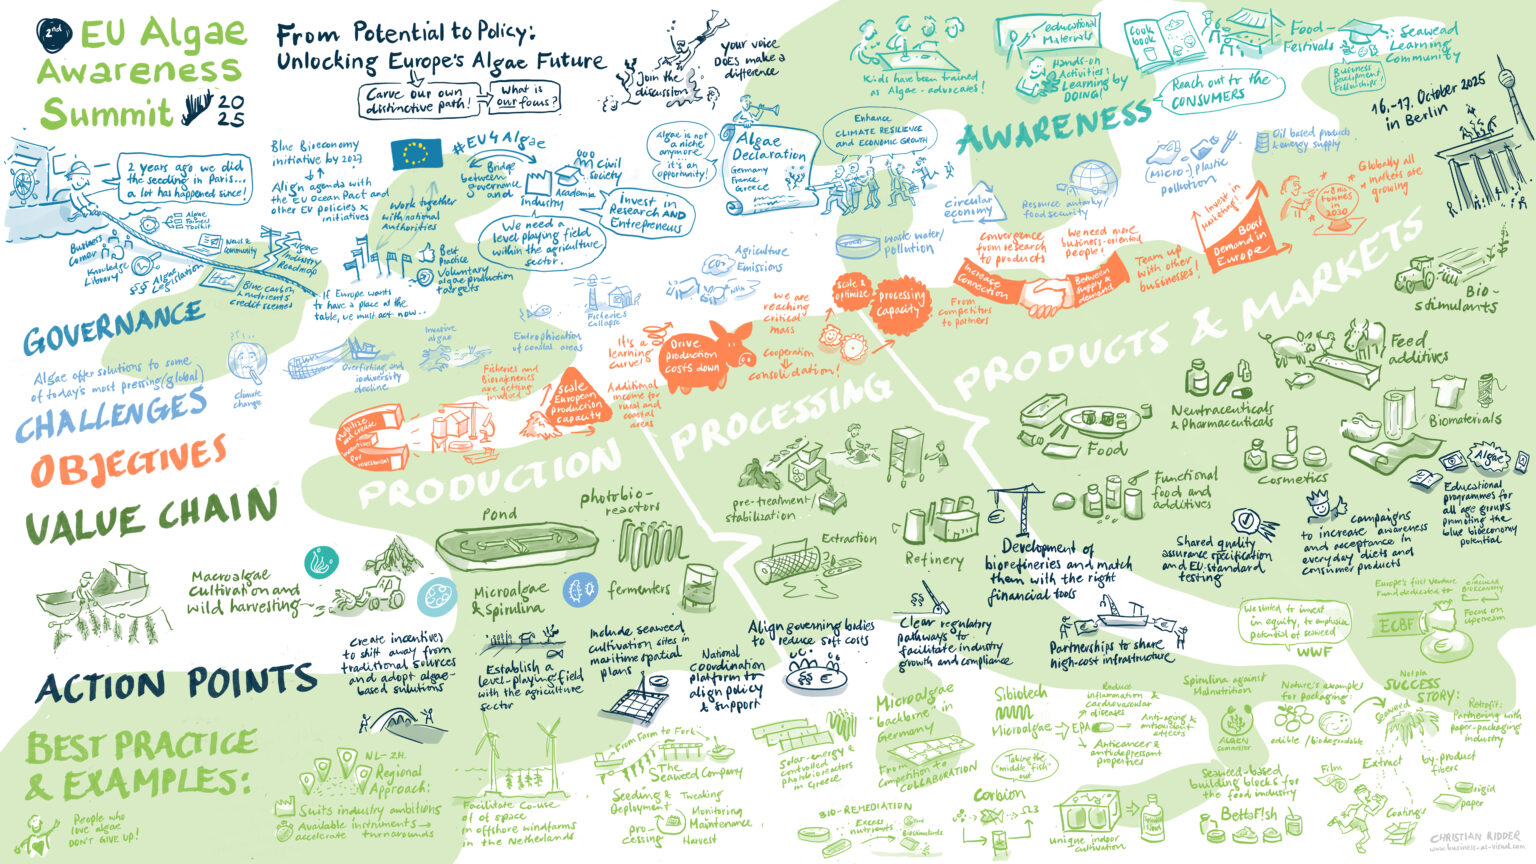 2nd EU Algae
Awareness
Summit 2025
From Potential to Policy:
Unlocking Europe's Algae Future
Carve our own
distinctive path!
What is
our focus?
Join the
discussion
your voice
DOES make a
difference
2 years ago we did
the seeding in Paris...
a lot has happened since!
Business
Corner
Knowledge
Library
Algae
Legislation
News &
Community
Algae
Industry
Roadmap
Blue carbon
& nutrients
credit schemes
Blue Bioeconomy
initiative by 2027
Align agenda with
the EU Ocean Pact and
other EU policies &
initiatives
#EU4Algae
Bridge
between
governance
and
industry
Academia
Civil
Society
Work together
with national
Authorities
Invest in
Research AND
Entrepreneurs
We need a
level playing field
within the agriculture
sector.
Best
Practice
Voluntary
algae production
targets
If Europe wants
to have a place at the
table, we must act now...
Algae is not
a niche
anymore...
it's an
opportunity!
Algae
Declaration
Germany
France
Greece
Enhance
CLIMATE RESILIENCE
and ECONOMIC GROWTH
GOVERNANCE
Kids have been trained
as Algae-advocates!
educational
Materials
Hands-on
Activities!
Learning by
DOING!
Cook
book
Reach out to the
CONSUMERS
Food-
Festivals
Seaweed
Learning
Community
Business
Development
Fellowships!
AWARENESS
16.-17. October 2025
in Berlin
Algae offer solutions to some
of today's most pressing (global)
CHALLENGES
Climate
change
Overfishing and
biodiversity
decline
Invasive
algae
Eutrophication
of coastal areas
Fisheries
collapse
Agriculture
Emissions
CO2
waste water/
pollution
circular
economy
Resource autarky/
food security
(Micro-) plastic
pollution
Oil based products
& energy supply
OBJECTIVES
Mobilize and create
incentives
for investment
Fisheries and
Biorefineries
are getting
involved
Scale
European
production
capacity
It's a
learning
curve!
Additional
income for
rural and
coastal
areas
Drive
production
costs down
We are
reaching
critical
mass
Cooperation
consolidation!
Scale &
optimize
processing
capacity
From
competitors
to partners
Convergence
from research
to products
Increase
Connection
We need more
business-oriented
people!
Between
supply &
demand
Team up
with other
businesses!
Invest in
marketing!
Boost
Demand in
Europe
tonnes in
2030
Globally all
markets are
growing
VALUE CHAIN
PRODUCTION
PROCESSING
PRODUCTS & MARKETS
Macroalgae
cultivation and
wild harvesting
Pond
photobio-
reactors
Microalgae
& Spirulina
fermenters
pre-treatment/
stabilization
Extraction
Refinery
Food
Functional
food and
additives
Neutraceuticals
& Pharmaceuticals
Cosmetics
Feed
additives
Bio-
stimulants
Biomaterials
ACTION POINTS
create incentives
to shift away from
traditional sources
and adopt algae-
based solutions
Establish a
level-playing field
with the agriculture
sector
Include seaweed
cultivation sites in
maritime spatial
plans
National
coordination
platform to
align policy
& support
Align governing bodies
to reduce soft costs
Clear regulatory
pathways to
facilitate industry
growth and compliance
Development of
biorefineries and match
them with the right
financial tools
Partnerships to share
high-cost infrastructure
Shared quality
assurance specification
and EU-standard
testing
campaigns
to increase awareness
and acceptance in
everyday diets and
consumer products
Algae
Educational
programmes for
all age groups
promoting the
blue bioeconomy
potential
BEST PRACTICE
& EXAMPLES:
People who
love algae
DON'T GIVE UP!
NL-ZH
Regional
Approach:
Suits industry ambitions
Available instruments →
accelerate turnarounds
Facilitate co-use
of space
in offshore windfarms
in the Netherlands
From Farm to Fork
The
Seaweed Company
Seeding &
Deployment
Tweaking
Monitoring
Maintenance
Harvest
Pro-
cessing
Solar-energy &
controlled
photobioreactors
in Greece
BIO-REMEDIATION
Excess
nutrients
Biostimulants
Microalgae
"backbone" in
Germany
From
Competition to
COLLABORATION
Sibiotech
Microalgae → EPA
Reduce
inflammation &
cardiovascular
diseases
Anti-aging &
antioxidant
effects
Anticancer &
antidepressant
properties
Taking the
"middle "fish"
out
Corbion
Ω3
unique indoor
cultivation
Spirulina against
Malnutrition
Seaweed-based
building blocks for
the food industry
BettaF!sh
We started to invest
in equity, to emphasize
potential of seaweed
WWF
Europe's first Venture
Fund dedicated to
circular
bioeconomy
ECBF
Focus on
upstream
Nature's examples
for packaging:
edible / biodegradable
Notpla
SUCCESS
STORY:
Seaweed
Extract
Film
Coating
Retrofit:
Partnering with
paper-packaging
industry
by-product
fibers
rigid
paper
CHRISTIAN RIDDER
www.business-as-visual.com